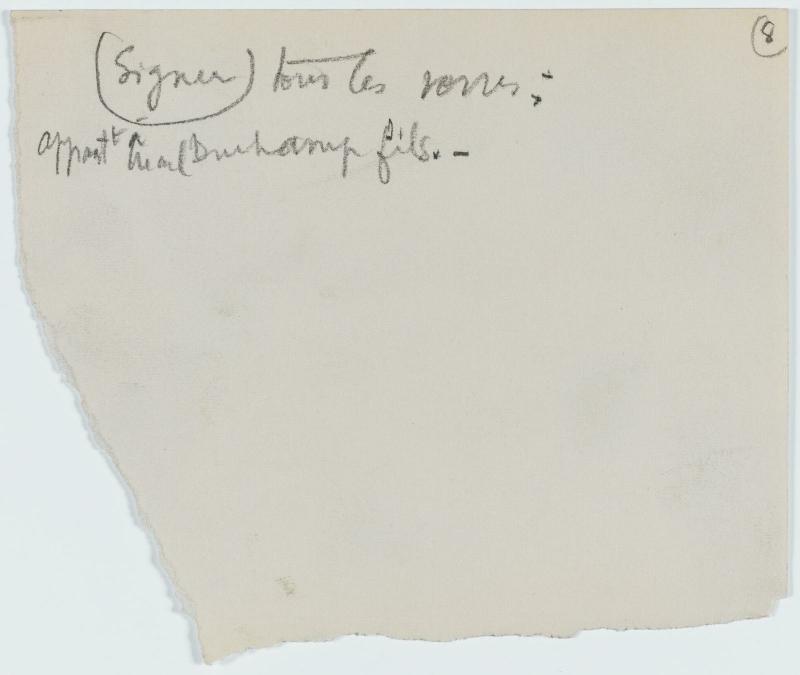 8
(Signer) tous les verres :
appart^t à Marcel Duchamp fils. –